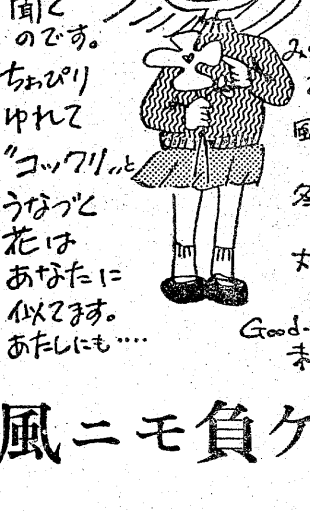 聞く
のです。
ちょっぴり
ゆれて
”コックリ”と
うなづく
花は
あなたに
似てます。
あたしにも‥‥
み
風
冬
Good-
風ニモ負ケ